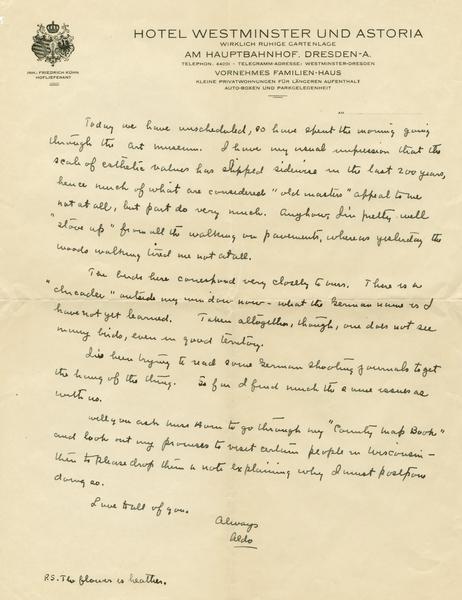 HOTEL WESTMINSTER UND ASTORIA
WIRKLICH RUHIGE GARTENLAGE
AM HAUPTBAHNHOF. DRESDEN-A.
TELEPHON: 44031 - TELEGRAMM-ADRESSE: WESTMINSTER-DRESDEN
VORNEHMES FAMILIEN-HAUS
KLEINE PRIVATWOHNUNGEN FÜR LÄNGEREN AUFENTHALT
AUTO-BOXEN UND PARKGELEGENHEIT
INH.: FRIEDRICH KÜHN
HOFLIEFERANT
Today we have unscheduled, so have spent the morning going
through the Art museum. I have my usual impression that the
scale of esthetic values has slipped sidewise in the last 200 years,
hence much of what are considered "old masters" appeal to me
not at all, but part do very much. Anyhow, I'm pretty well
"stove up" from all the walking on pavements, whereas yesterday the
woods walking tired me not at all.
The birds here correspond very closely to ours. There is a
"chicadee" outside my window now - what the German name is I
have not yet learned. Taken altogether, though, one does not see
many birds, even in good territory.
I've been trying to read some German shooting journals to get
the hang of the thing. So far I find much the same issues as
with us.
Will you ask Miss Horn to go through my "County Map Book"
and look out my promises to visit certain people in Wisconsin -
then to please drop them a note explaining why I must postpone
doing so.
Love to all of you.
Always
Aldo
P.S. The flower is heather.